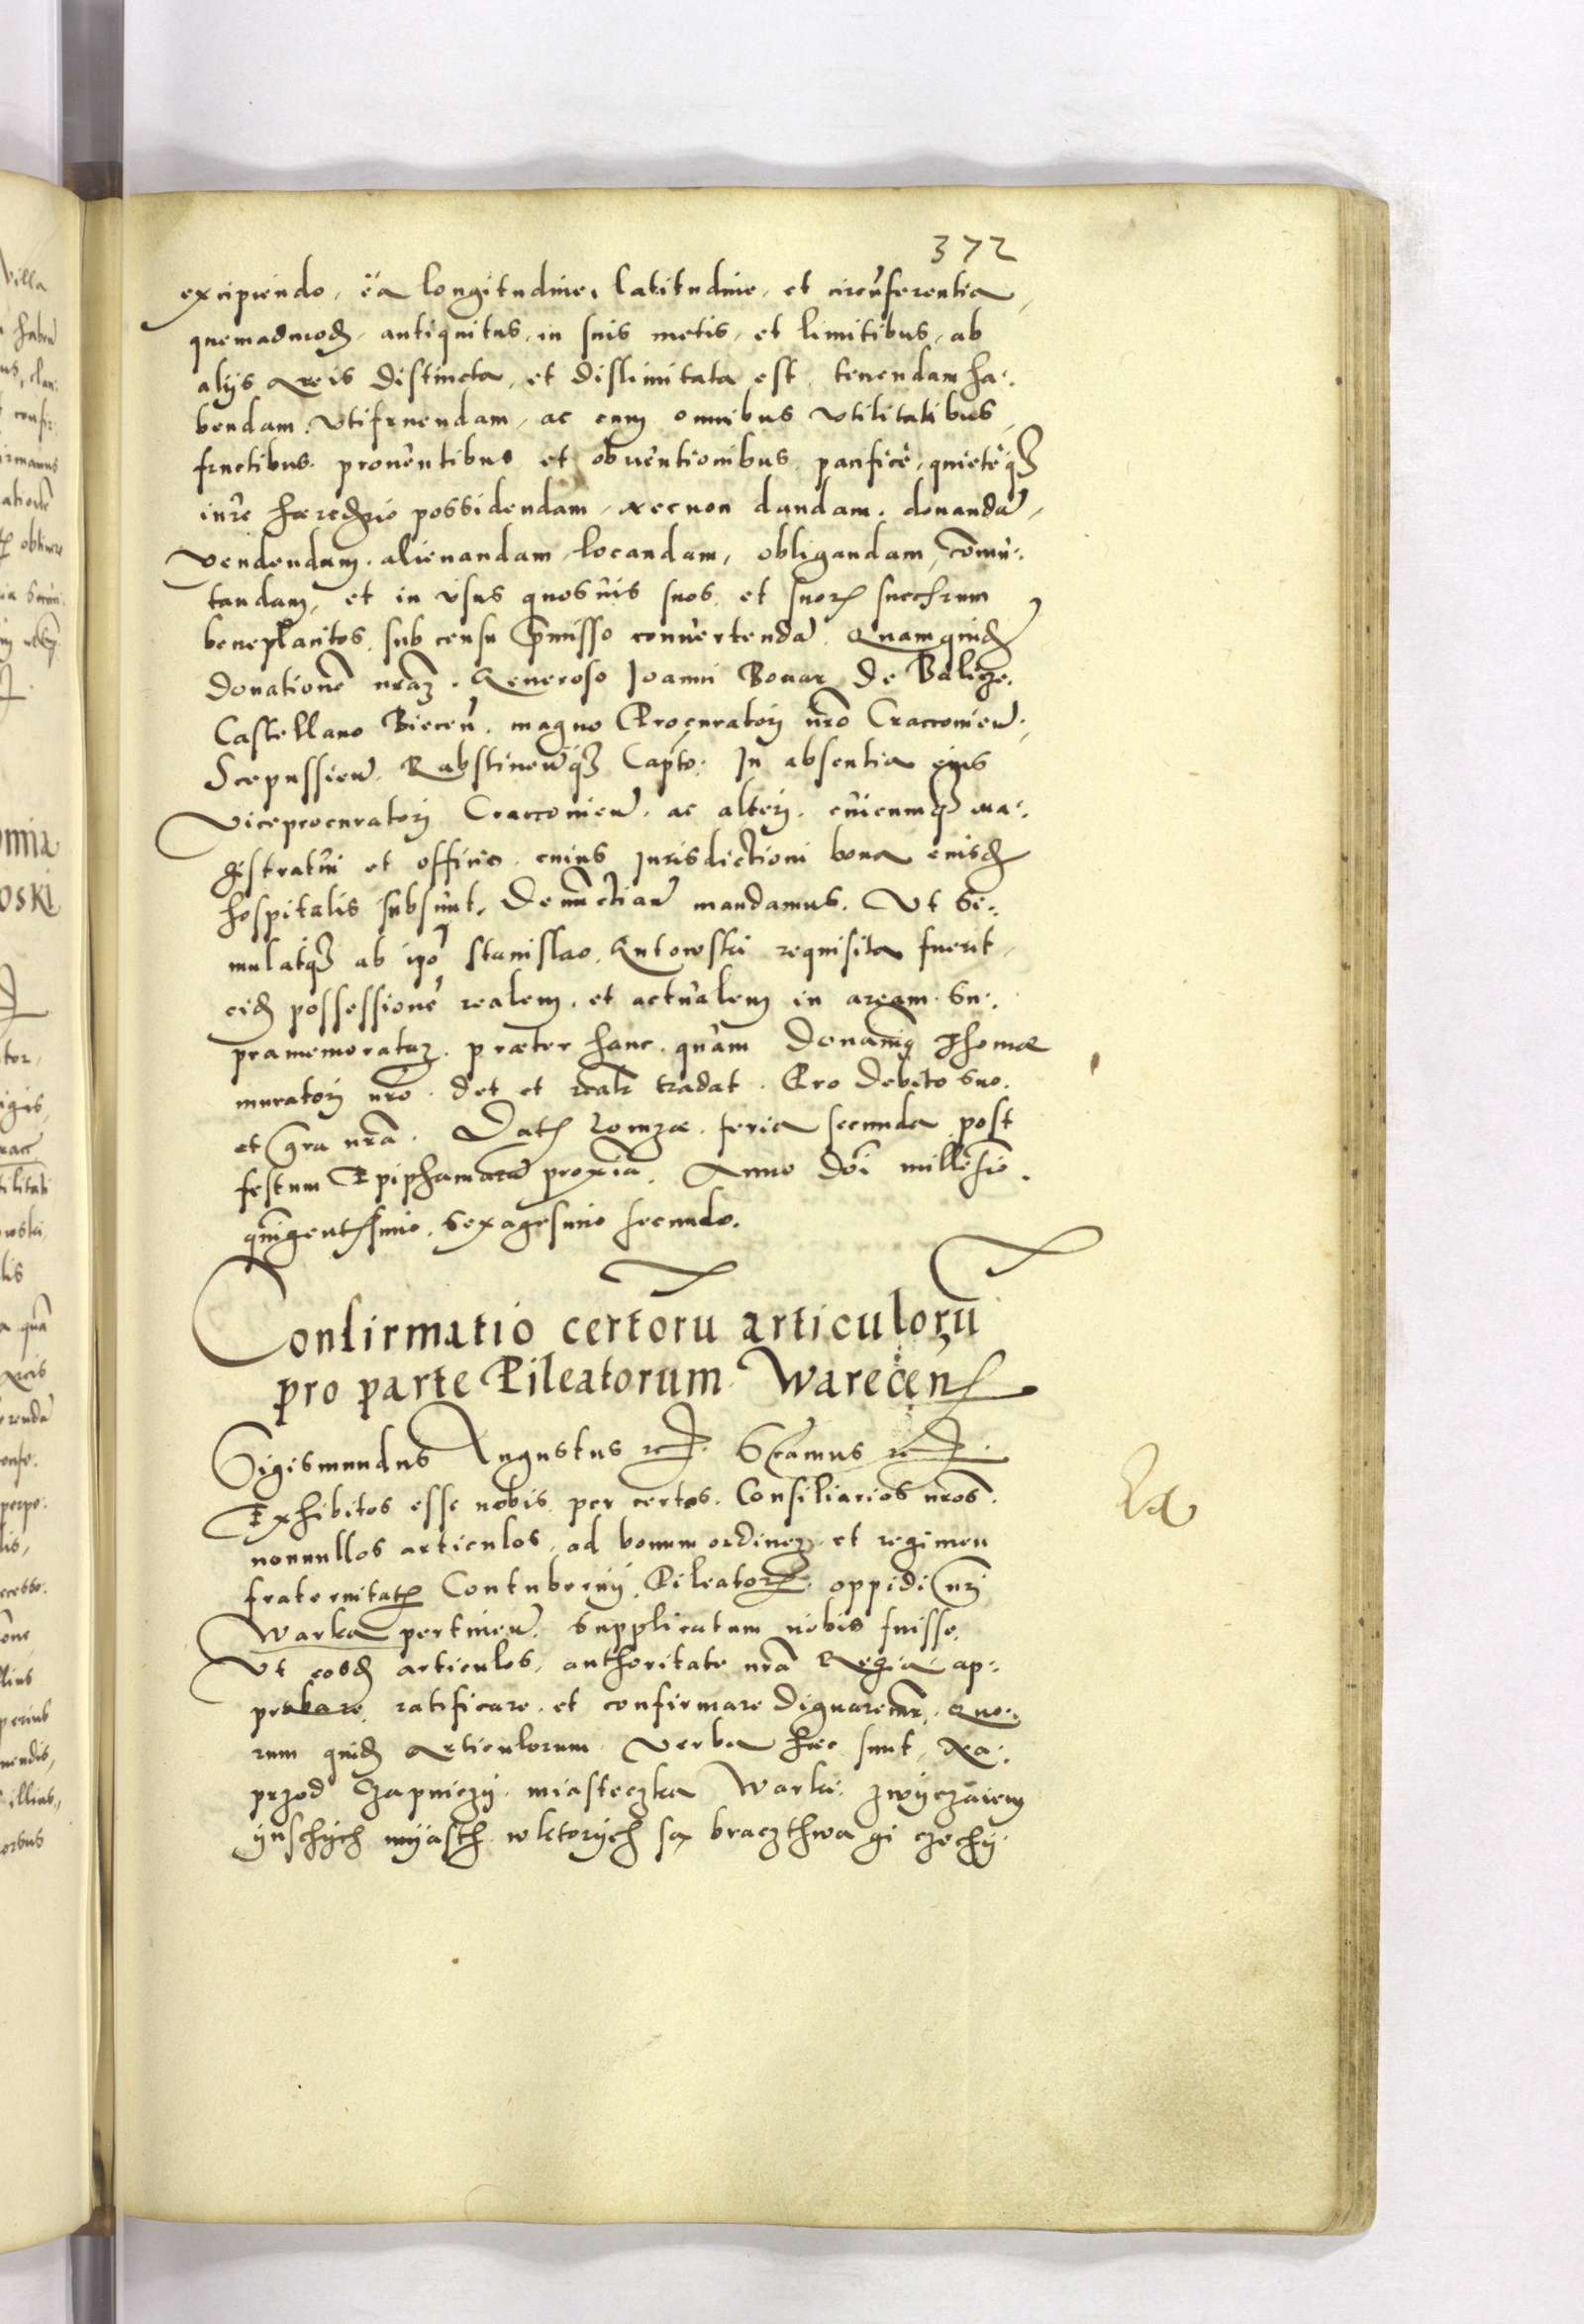 372
excipiendo, ea longitudine, latitudine, et circũferentia,
quemadmod, antiquitus, in suis metis, et limitibus, ab
alijs Areis distincta, et dislimitata est, tenendam ha:
bendam, Vtifruendam, ac cum omnibus vtilitatibus,
fructibus, prouentibus et obuentionibus, pacificè, quietèq
iure hæredrio possidendam, Necnon dandam, donandã,
vendendam, alienandam, locandam, obligandam, cõmu:
tandam, et in vsus quosuis suos, et suor succrum
beneplacitos, sub censu pmisso conuertendã. Quamquid
donationẽ nrãm, Generoso Joanni Bonar de Balicze,
Castellano Biecen, magno Procuratori nrõ Cracouien,
Scepussien, Rabstineñq Capto: In absentia eius
Viceprocuratori Cracouien, ac alteri, cuicumq ma:
gistratui et officio, cuius Jurisdictioni bona eiusd
hospitalis subsunt, Denũctiari mandamus. Vt si:
mulatq ab ipo Stanislao Gutowski requisita fuerit,
eid possessionẽ realem, et actualem in aream su:
pramemoratam, præter hanc, quam donauimus Thomæ
muratori nrõ, det et realr tradat. Pro debito suo,
et gra nrã. Dat Lomzæ, feria secunda post
festum Epiphaniarũ proxia, Anno Doi millesio,
quingentesimo, Sexagesimo secundo.
Confirmatio certorũ articulorũ
pro parte Pileatorum Warecen
Sigismundus Augustus rc. Scamus rc.
Exhibitos esse nobis, per certos, Consiliarios nros,
nonnullos articulos, ad bonum ordinem, et regimen
fraternitat Contubernij Pileator, oppidi nri
Warka pertinen. Supplicatum nobis fuisse,
Vt eosd articulos, authoritate nrã Regia, ap:
probare, ratificare, et confirmare dignaremr. Quo:
rum quid Articulorum verba hæc sunt, Na:
przod Czapniczy, miasteczka Warki, zwyczaiem
ynschych myasth, w ktorych są braczthwa gi czechy